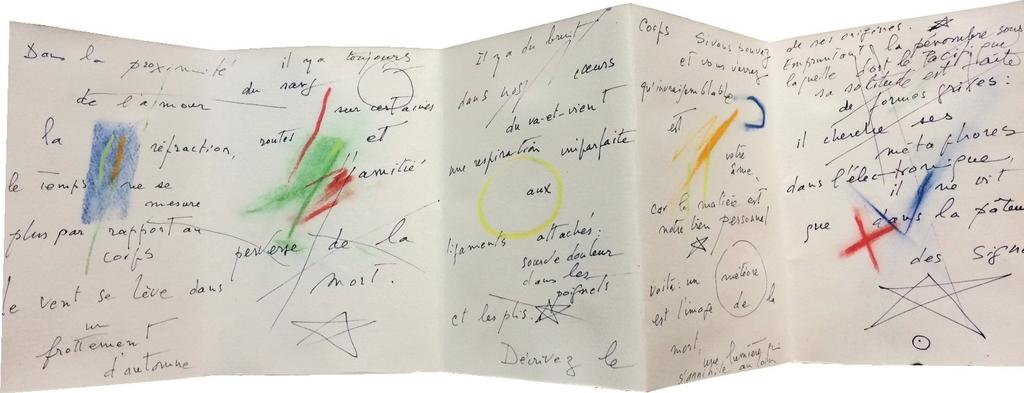 Dans la
proximité
de l'amour
la
réfraction,
le temps ne se
mesure
plus par rapport au
corps
le vent se lève dans
un
frottement
d'automne
il y a toujours
du sang
sur certaines
routes et
l'amitié
perverse de la
mort.
Il y a du bruit
dans nos cœurs
du va-et-vient
une respiration imparfaite
aux
ligaments attachés :
sourde douleur
dans les
poignets
et les plis.
Décrivez le
corps
Si vous pouvez
et vous verrez
qu'invraisemblable
est
votre
âme,
car la matière est
notre bien personnel
voilà : un météore
est l'image de la
mort,
une lumière qui
s'annihile au loin
de ses origines.
Empruntant la pénombre sous
laquelle dort le Pacifique
sa solitude est faite
de formes grises :
il cherche ses
métaphores
dans l'électronique,
il ne vit
que dans la pâteur
des signes